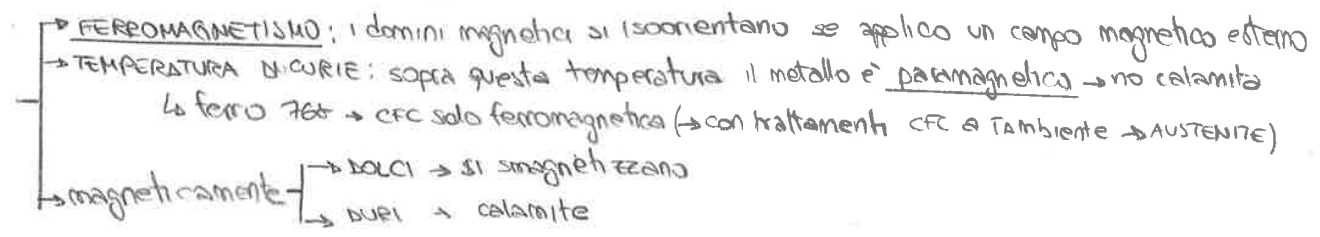 → FERROMAGNETISMO: i domini magnetici si isoorientano se applico un campo magnetico esterno
→ TEMPERATURA DI CURIE: sopra questa temperatura il metallo è paramagnetico → no calamita
↳ ferro → CFC solo ferromagnetica (→ con trattamenti CFC a Tambiente → AUSTENITE)
→ magneticamente → DOLCI → si smagnetizzano
→ DURI → calamite